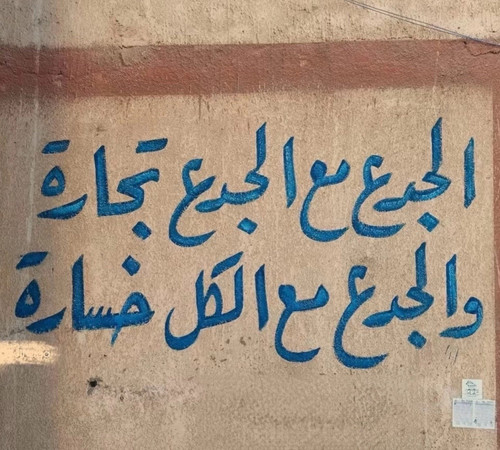 الجدع مع الجدع تجارة
والجدع مع الكل خسارة